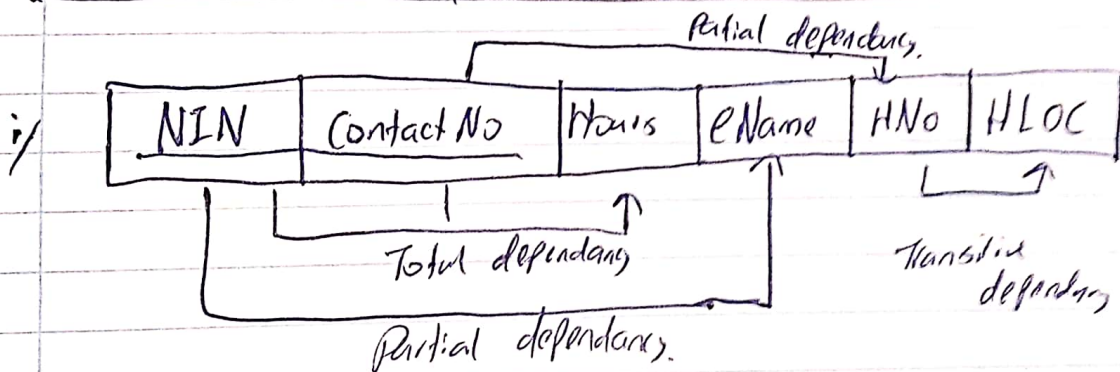 Partial dependancy.
i/ NIN ContactNo Hours eName HNo HLOC
Total dependancy
Transitive dependancy
Partial dependancy.